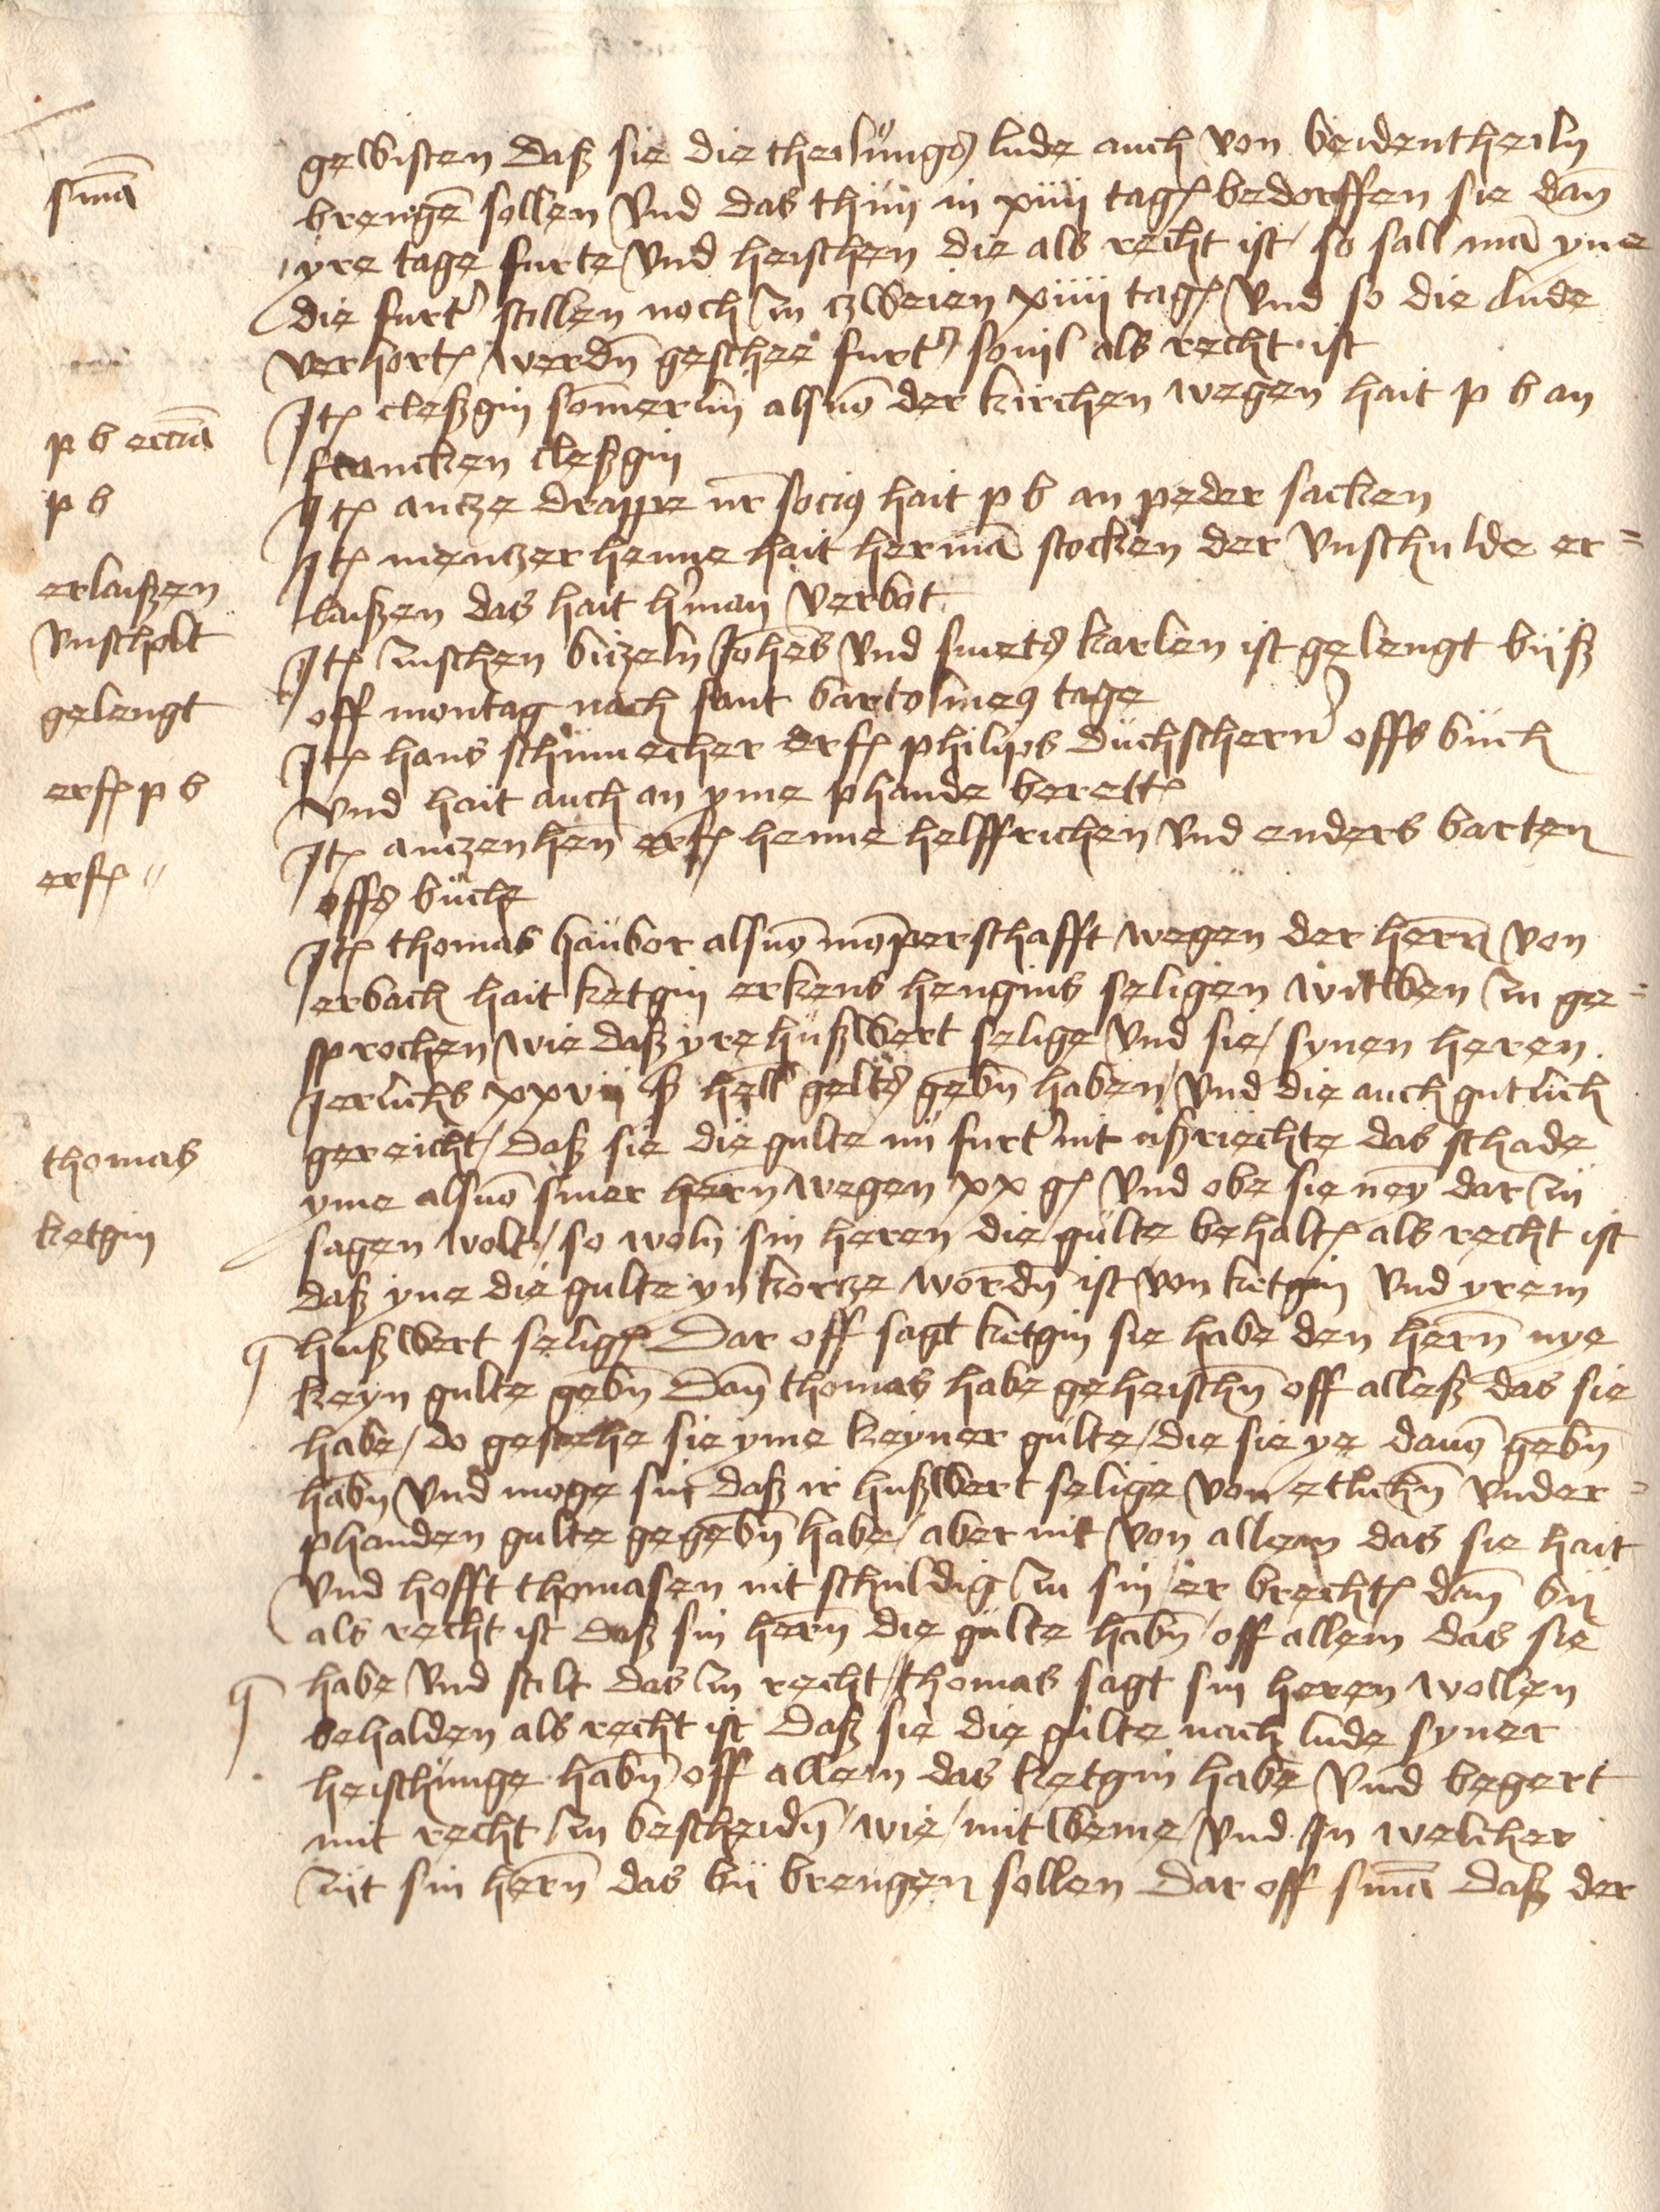 gewisten daß sie die theilungs lude auch von beidentheiln
sma
brengē sollen vnd das thun in xiiii tagen bedorffen sie dan
yre tage furte vnd heischen die als recht ist / so sall mā yne
die furt' stillen noch zu czweien xiiii tagen vnd so die lude
verhorten werdn̄ geschee furt' souil als recht ist
p b ecciā
Itē cleßgin somerūn alsuō der kirchen wegen hait p b an
francken cleßgin
p b
Itē antze drappe nr̄ socius hait p b an peder sacken
Itē mentzer henne hait hermā stocken der vnschulde er=
erlaißen
laißen das hait h'man verbot
vnscholt
Itē zuschen bitzeln Johes vnd smets karlen ist gelengt bijß
gelengt
off montag nach sant bartolmeus tage
Itē hans schumecher erfē philips duchschern' offs buch
erfē p b
vnd hait auch an yme phande berettē
Itē antzenhen erfē henne helffrichen vnd enders barten
erfē
offs buche
Itē thomas haubor alsuō mōperschafft wegen der hern̄ von
erbach hait ketgin erkens hengins seligen witwen zu ge=
sprochen wie daß yre hußwert selige vnd sie / synen heren
Jerlichs xxvij ß hell' gelts gebn̄ haben / vnd die auch gutlich
gereicht / daß sie die gulte nu furt' nit ußriechte das schade
thomas
yme alsuō siner hern̄ wegen xx gē vnd obe sie neȳ dar zu
ketgin
sagen wolt / so woln sin heren die gulte behaltē als recht ist
daß yne die gulte yn kortze wordn̄ ist von ketgin vnd yrem
hußwert seligē Dar off sagt ketgin sie habe den hern̄ nye
keyn gulte gebn̄ Dan̄ thomas habe geheischn̄ off alleß das sie
habe / do gestehe sie yme keyner gulte / die sie ye dauō gebn̄
habn̄ vnd moge sin daß ir hußwert selige von etlichn̄ vnder=
phanden gulte gegebn̄ habe / aber nit von allem das sie hait
vnd hofft thomasen nit schuldig zu sin / er brechtē dan̄ bij
als recht ist daß sin hern̄ die gulte habn̄ / off allem das sie
habe vnd stilt das zu recht / thomas sagt sin heren wollen
behalden als recht ist daß sie die gulte nach lude syner
heischunge habn̄ off allem das ketgin habe vnd begert
mit recht zu bescheidn̄ / wie / mit weme / vnd In welicher
zijt sin hern̄ das bij brengen sollen Dar off smā daß der